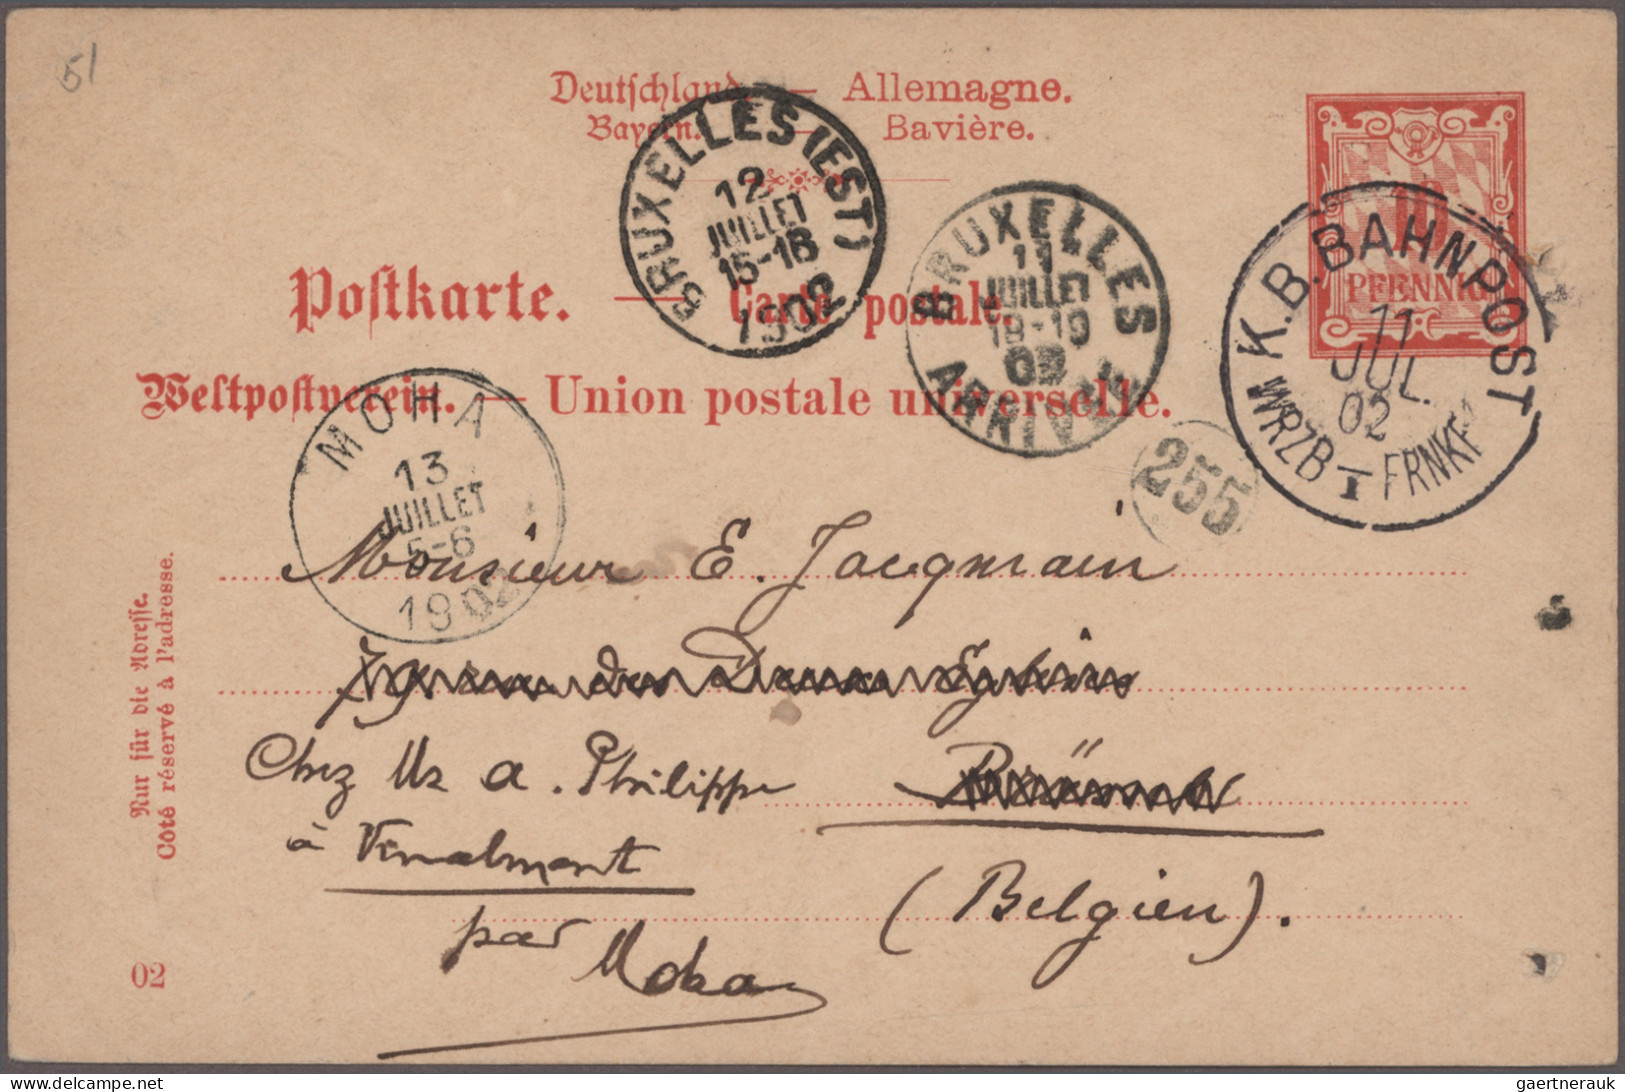 51
Deutschland. — Allemagne.
Bayern. — Bavière.
10
PFENNIG
Postkarte. — Carte postale.
Weltpostverein. — Union postale universelle.
BRUXELLES (EST)
12
JUILLET
15-16
1902
BRUXELLES
11
JUILLET
18-19
02
ARRIVÉE
K.B. BAHNPOST
11
JUL.
02
WRZB I FRNKF
255
MOHA
13
JUILLET
5-6
1902
Monsieur E. Jacqmain
Chez Mr A. Philippe
à
par Moha
(Belgien).
Nur für die Adresse.
Côté réservé à l'adresse.
02
www.delcampe.net
gaertnerauk